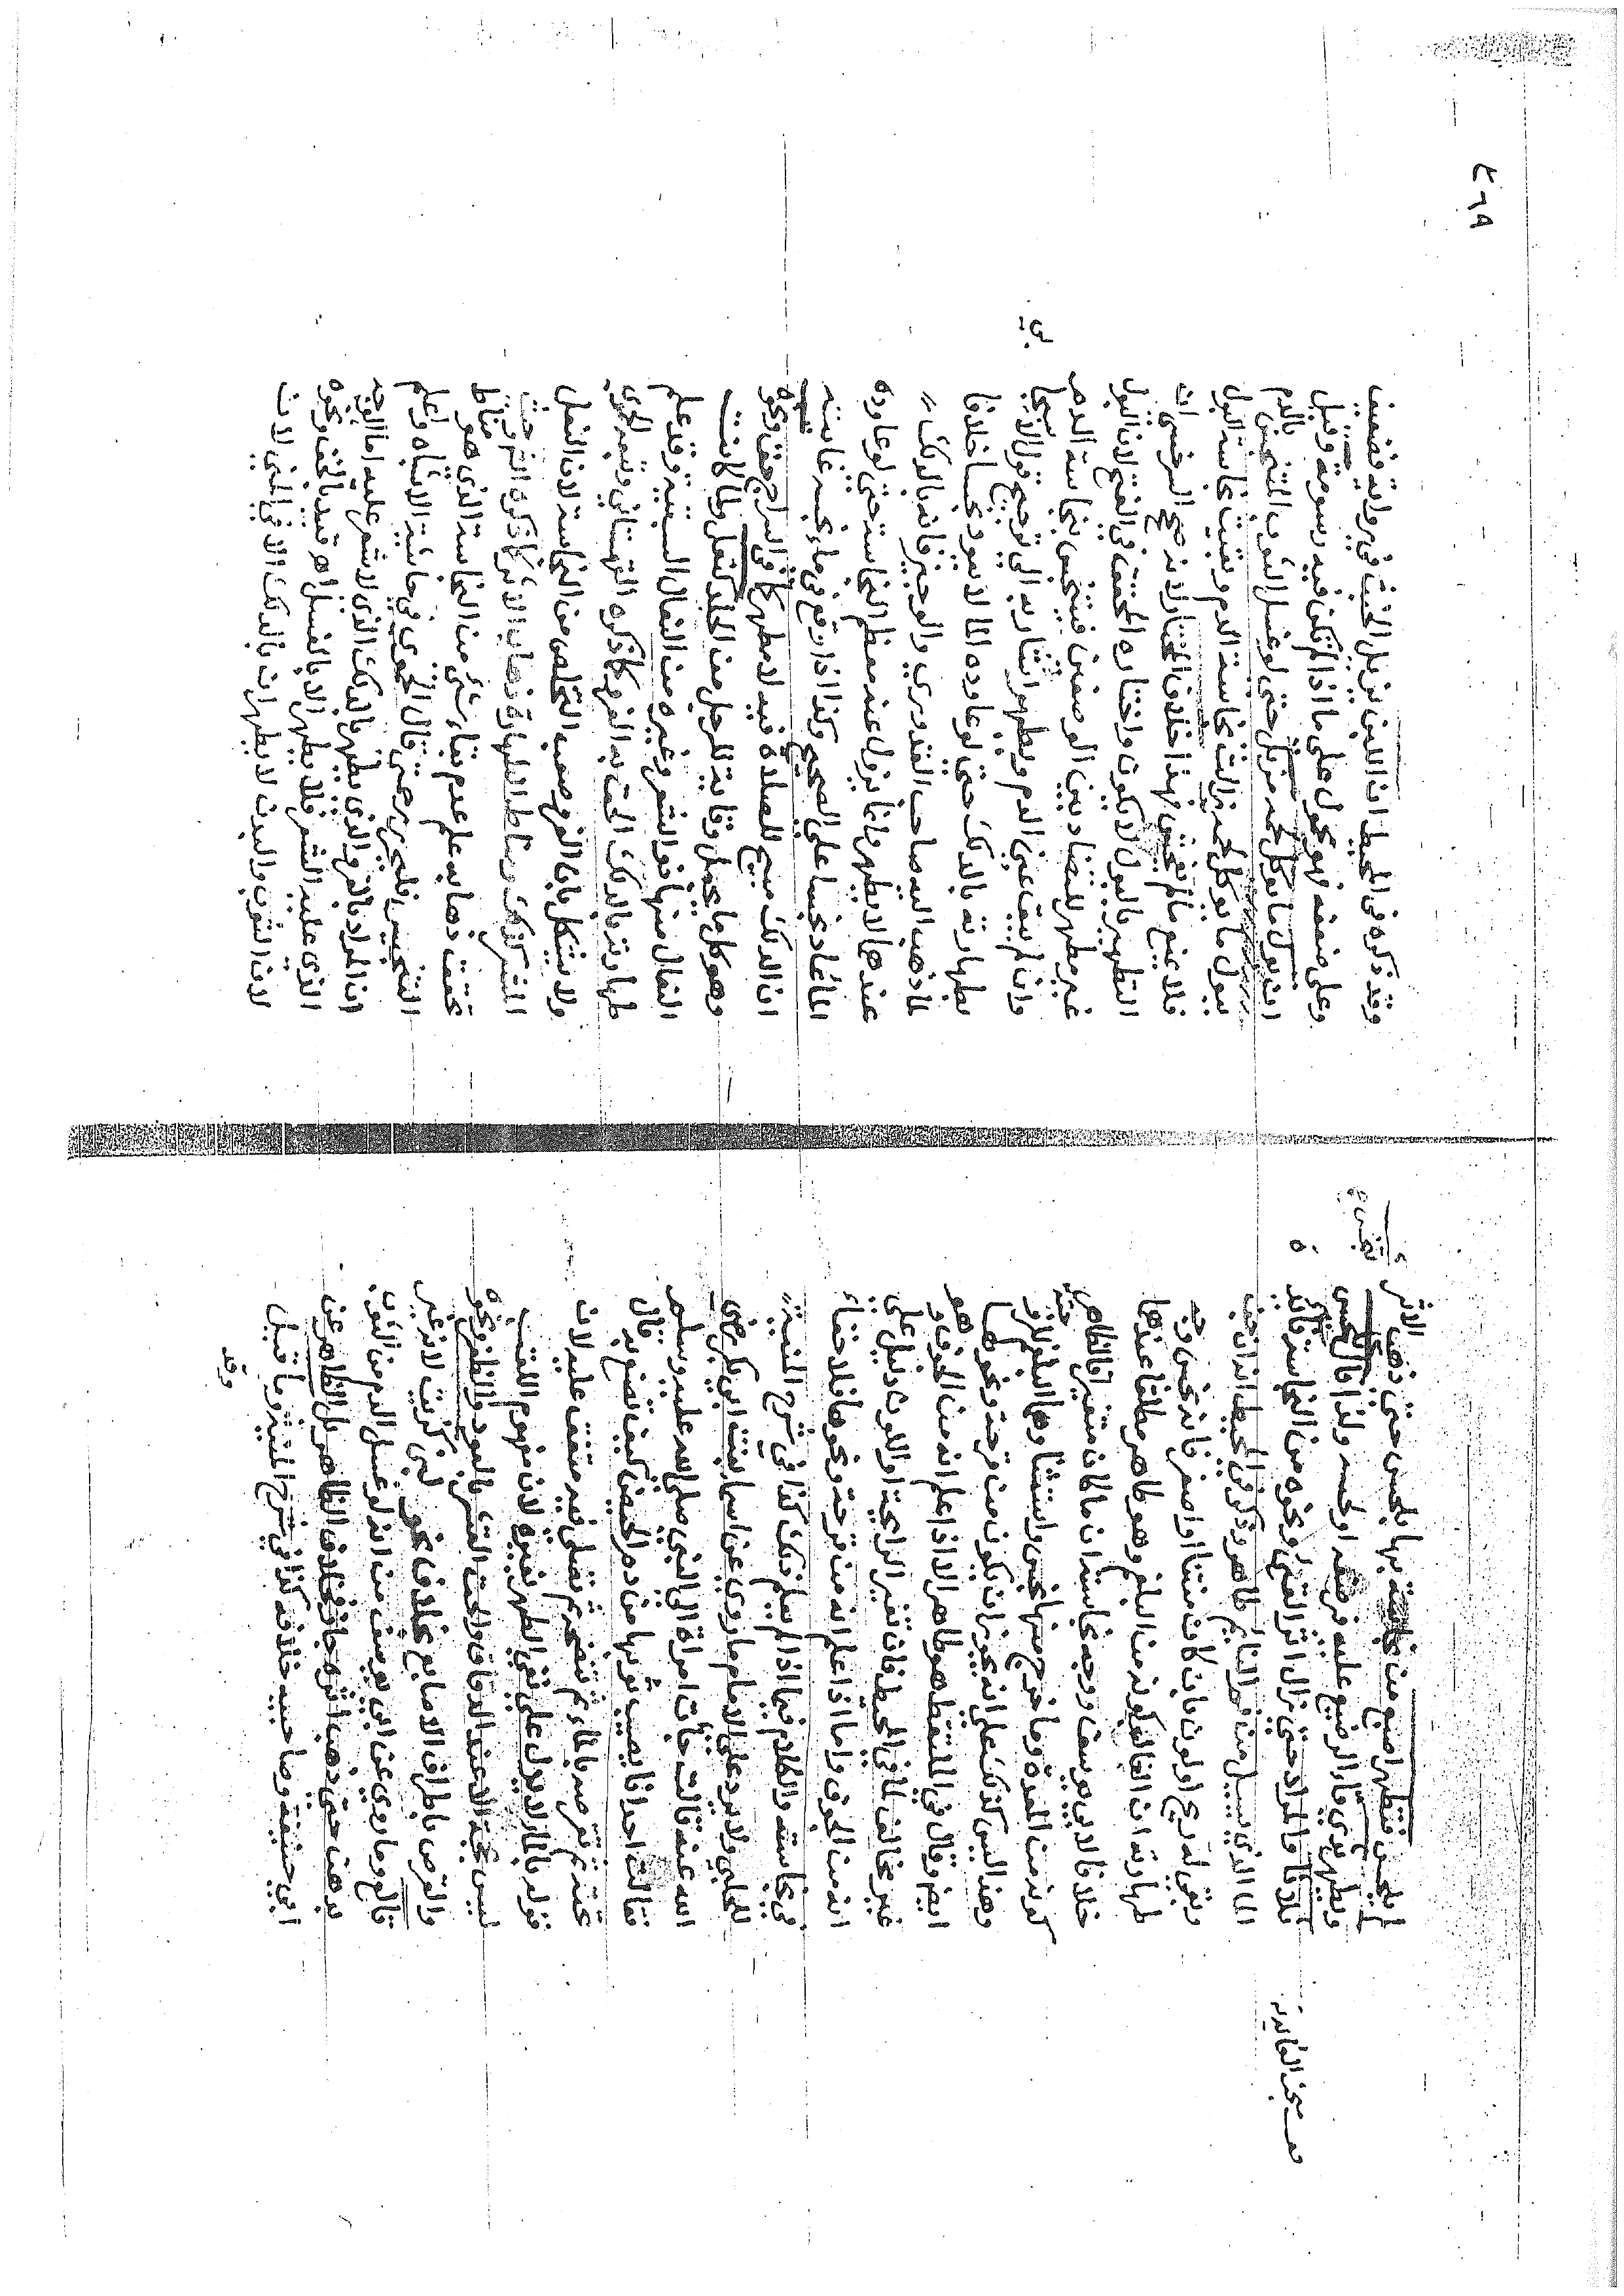 ما يلحس فتطهر اصبع من نجاسة بها بلحس حتى ذهب الاثر
ويطهر ثدي قاء الرضيع عليه فرضعه او لحسه ولذا قال بلحس
ثلاثا والمراد حتى يزال اثر القيئ ونحوه من النجاسة فائدة
الماء الذي يسيل من فم النائم طاهر وذكر في المحيط انه ان جف
وبقي له ريح او لون بان كان منتنا او اصفر فانه نجس وجه
طهارته ان الغالب كونه من البلغم وهو طاهر مطلقا عندهما
خلافا لابي يوسف ووجه نجاسته ان ما كان متغيرا فالظاهر فيه
كونه من المعدة وما خرج منها نجس واستثناؤها البلغم
وهذا ليس كذلك على انه يجوز ان يكون من قرحة ونحوها
ايضا وقال في الملتقط هو طاهر الا اذا علم انه من الجوف وهو
غير مخالف لما في المحيط فان تغير الرايحة او اللون دليل على
انه من الجوف واما اذا علم انه من قرحة ونحوها فلا خفاء
في نجاسته والكلام فيما اذا لم يعلم ذلك كذا في شرح المنية
للحلبي ولا يرد على الامام ما روي عن اسما بنت ابي بكر رضي
الله عنه قالت جات امراة الى النبي صلى الله عليه وسلم
فقالت احدانا يصيب ثوبها من دم الحيض كيف تصنع به قال
تحته ثم تقرصه بالماء ثم تنضحه ثم تصلي فيه متفق عليه لان
قوله بالماء لا يدل على نفي الطهر بغيره لانه مفهوم اللقب
ليس بحجة الا عند الدقاق والحت القشر بالعود والظفر ونحوه
والقرص باطراف الاصابع بخلاف نحو لبن كزيت لانه غير
قالع وما روي عن ابي يوسف من انه لو غسل الدم من الثوب
بدهن حتى ذهب اثره جاز فخلاف الظاهر بل الظاهر عن
ابي حنيفة وصاحبيه خلافه كذا في شرح المنية وما قيل
وقد
٤٦٩
وقد ذكره في المحيط ان اللبن يزيل الخبث في رواية فضعيف
وعلى ضعفه فهو محمول على ما اذا لم تكن فيه دسومة وقيل
ان بول ما يوكل لحمه مزيل حتى لو غسل الثوب المتنجس بالدم
ببول ما يوكل لحمه زالت نجاسة الدم وبقيت نجاسة البول
فلا يمنع ما لم يفحش بهذا خلاف المختار لانه صحح السرخسي ان
التطهير بالبول لا يكون واختاره المحقق في الفتح لان البول
غير مطهر للتضاد بين الوصفين فيتنجس بنجاسة الدم
وان لم يبق عين الدم ويطهر اشار به الى توضيح قول
بطهارته بالدلك حتى لو عاوده الماء لا يعود نجسا خلافا
لما ذهب اليه صاحب القدوري والوجيز فانه بالدلك
عندهما لا يطهر وانما يزول عنه معظم النجاسة حتى لو عاوده
الماء عاد نجسا على الصحيح وكذا اذا وقع في ماء نجسه غايته
ان الدلك مبيح للصلاة فيه لا مطهر كما في السراج خف ونحوه
وهو كل ما يجعل وقاية للرجل من الجلد كنعل وانما كانت
النعال منها نحو الشعر وغيره من النعال السبتية وقد علم
طهارته بالدلك الحق به الفرو كما ذكره القهستاني وتبعه الحموي
ولا يشكل بان الفرو صعب التخلص من النجاسة لان النعل
المشعر كذلك ومناط الطهارة ذهاب الاثر كما ذكره الشر حيث
تحققت ذهابه علم عدم بقاء شئ من النجاسة الذي هو مناط
التنجيس فليحرر حتى قال الحموي في حاشية الاشباه واعلم
ان المراد بالفرو الذي يطهر بالدلك الذي لا شعر عليه اما الوجه
الذي عليه الشعر فلا يطهر الا بالغسل اهـ قيد بالخف ونحوه
لان الثوب والبدن لا يطهران بالدلك الا في المني لان